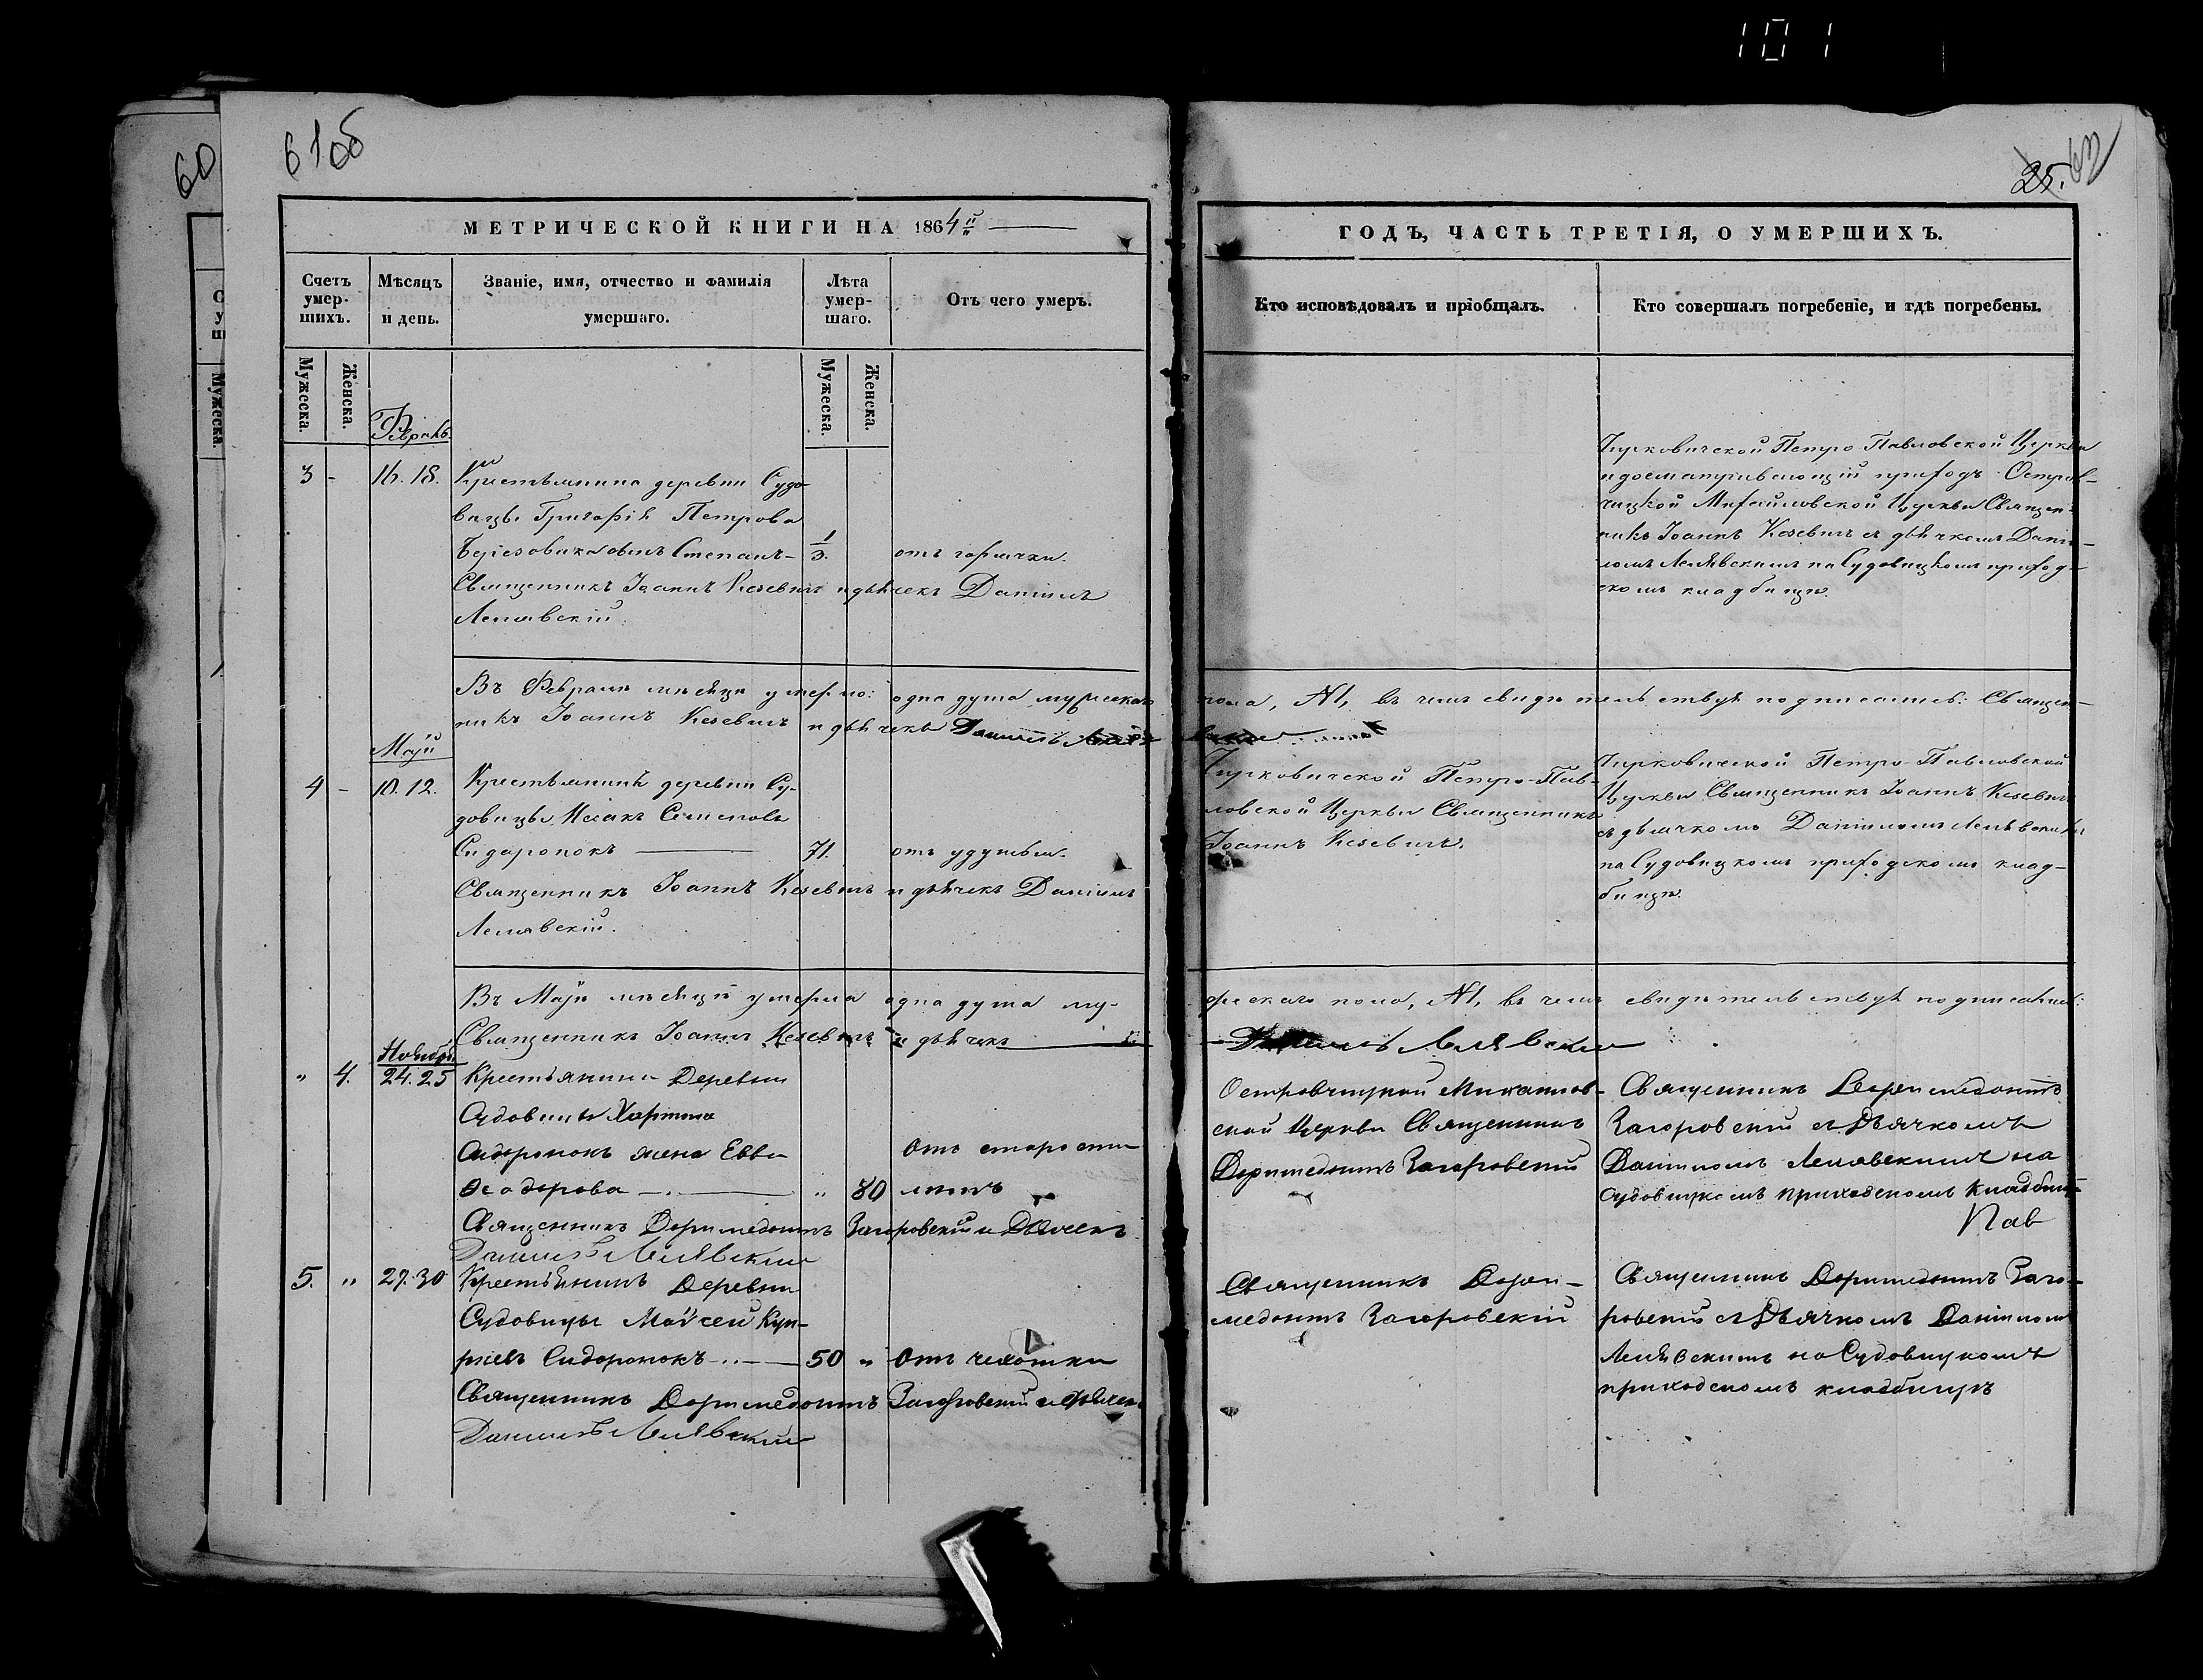 101
60
61об
25. 62
МЕТРИЧЕСКОЙ КНИГИ НА 1864й
ГОДЪ, ЧАСТЬ ТРЕТІЯ, О УМЕРШИХЪ.
Счетъ умер-шихъ.
Мѣсяцъ и день.
Званіе, имя, отчество и фамилія умершаго.
Лѣта умер-шаго.
Отъ чего умеръ.
Кто исповѣдовалъ и пріобщалъ.
Кто совершалъ погребеніе, и гдѣ погребены.
Мужеска.
Женска.
Мужеска.
Женска.
3 - 16. 18.
Крестьянина деревни Судо-
вицы Григорія Петрова
сынъ Степанъ - 1/3. отъ горячки.
Священникъ Іоаннъ и дьячекъ Даніилъ
Лелявскій.
Петро Павловской Церкви
приходъ Остров-
чицкой Михайловской Церкви Священ-
никъ Іоаннъ съ дьячкомъ Дані-
ломъ Лелявскимъ на Судовицкомъ приход-
скомъ кладбищѣ.
Въ Февралѣ мѣсяцѣ умерло: одна душа мужескаго пола, №1, въ чемъ свидѣтельствуя подписались: Священ-
никъ Іоаннъ и дьячекъ Даніилъ
Май
4 - 10. 12.
Крестьянинъ деревни Су-
довицы Исаакъ Семеновъ
Сидоронокъ 71. отъ удушья.
Священникъ Іоаннъ и дьячекъ Даніилъ
Лелявскій.
Петро-Пав-
ловской Церкви Священникъ
Іоаннъ
Петро-Павловской
Церкви Священникъ Іоаннъ
съ дьячкомъ Даніиломъ Лелявскимъ
на Судовицкомъ приходскомъ клад-
бищѣ.
Въ Маѣ мѣсяцѣ умерла одна душа му-
жескаго пола, №1, въ чемъ свидѣтельствуя подписались:
Священникъ Іоаннъ и дьячекъ
Даніилъ Лелявскій
Ноябрь
" 4. 24. 25
Крестьянина Деревни
Судовицы Харитона
Сидоронокъ жена Евва
Ѳеодорова " 80 Отъ старости
лѣтъ
Священникъ Доримедонтъ Загоровскій и Дьячекъ
Даніилъ Лелявскій
Островчицкой Михайлов-
ской Церкви Священникъ
Доримедонтъ Загоровскій
Священникъ Доримедонтъ
Загоровскій съ Дьячкомъ
Даніиломъ Лелявскимъ на
Судовицкомъ приходскомъ кладбищѣ
Пав
5. " 27. 30
Крестьянинъ Деревни
Судовицы Мойсей
Сидоронокъ 50 " Отъ чахотки
Священникъ Доримедонтъ Загоровскій и Дьячекъ
Даніилъ Лелявскій
Священникъ Дори-
медонтъ Загоровскій
Священникъ Доримедонтъ Заго-
ровскій съ Дьячкомъ Даніиломъ
Лелявскимъ на Судовицкомъ
приходскомъ кладбищѣ